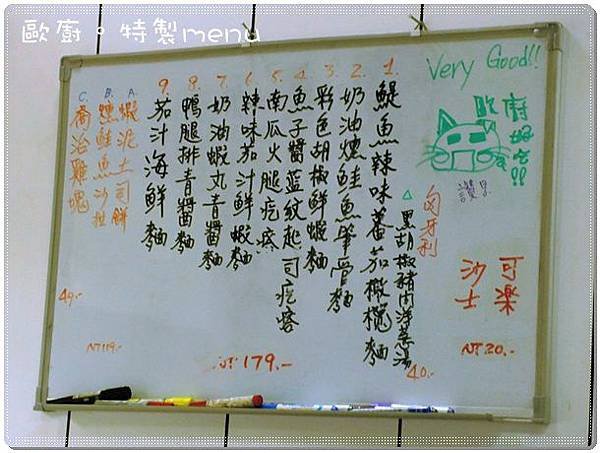 歐廚。特製menu
Very Good!!
歐廚好吃!!
讚!!
可樂
沙士
NT20.-
匈牙利
△黑胡椒豬肉洋蔥湯
40.-
1. 鯷魚辣味蕃茄橄欖麵
2. 奶油燻鮭魚筆管麵
3. 彩色胡椒鮮蝦麵
4. 魚子醬藍紋起司疙瘩
5. 南瓜火腿疙瘩
6. 辣味茄汁鮮蝦麵
7. 奶油蝦丸青醬麵
8. 鴨腿排青醬麵
9. 茄汁海鮮麵
NT179.-
A. 蝦泥土司餅
B. 燻鮭魚沙拉
NT119.-
C. 喬治雞塊
49.-